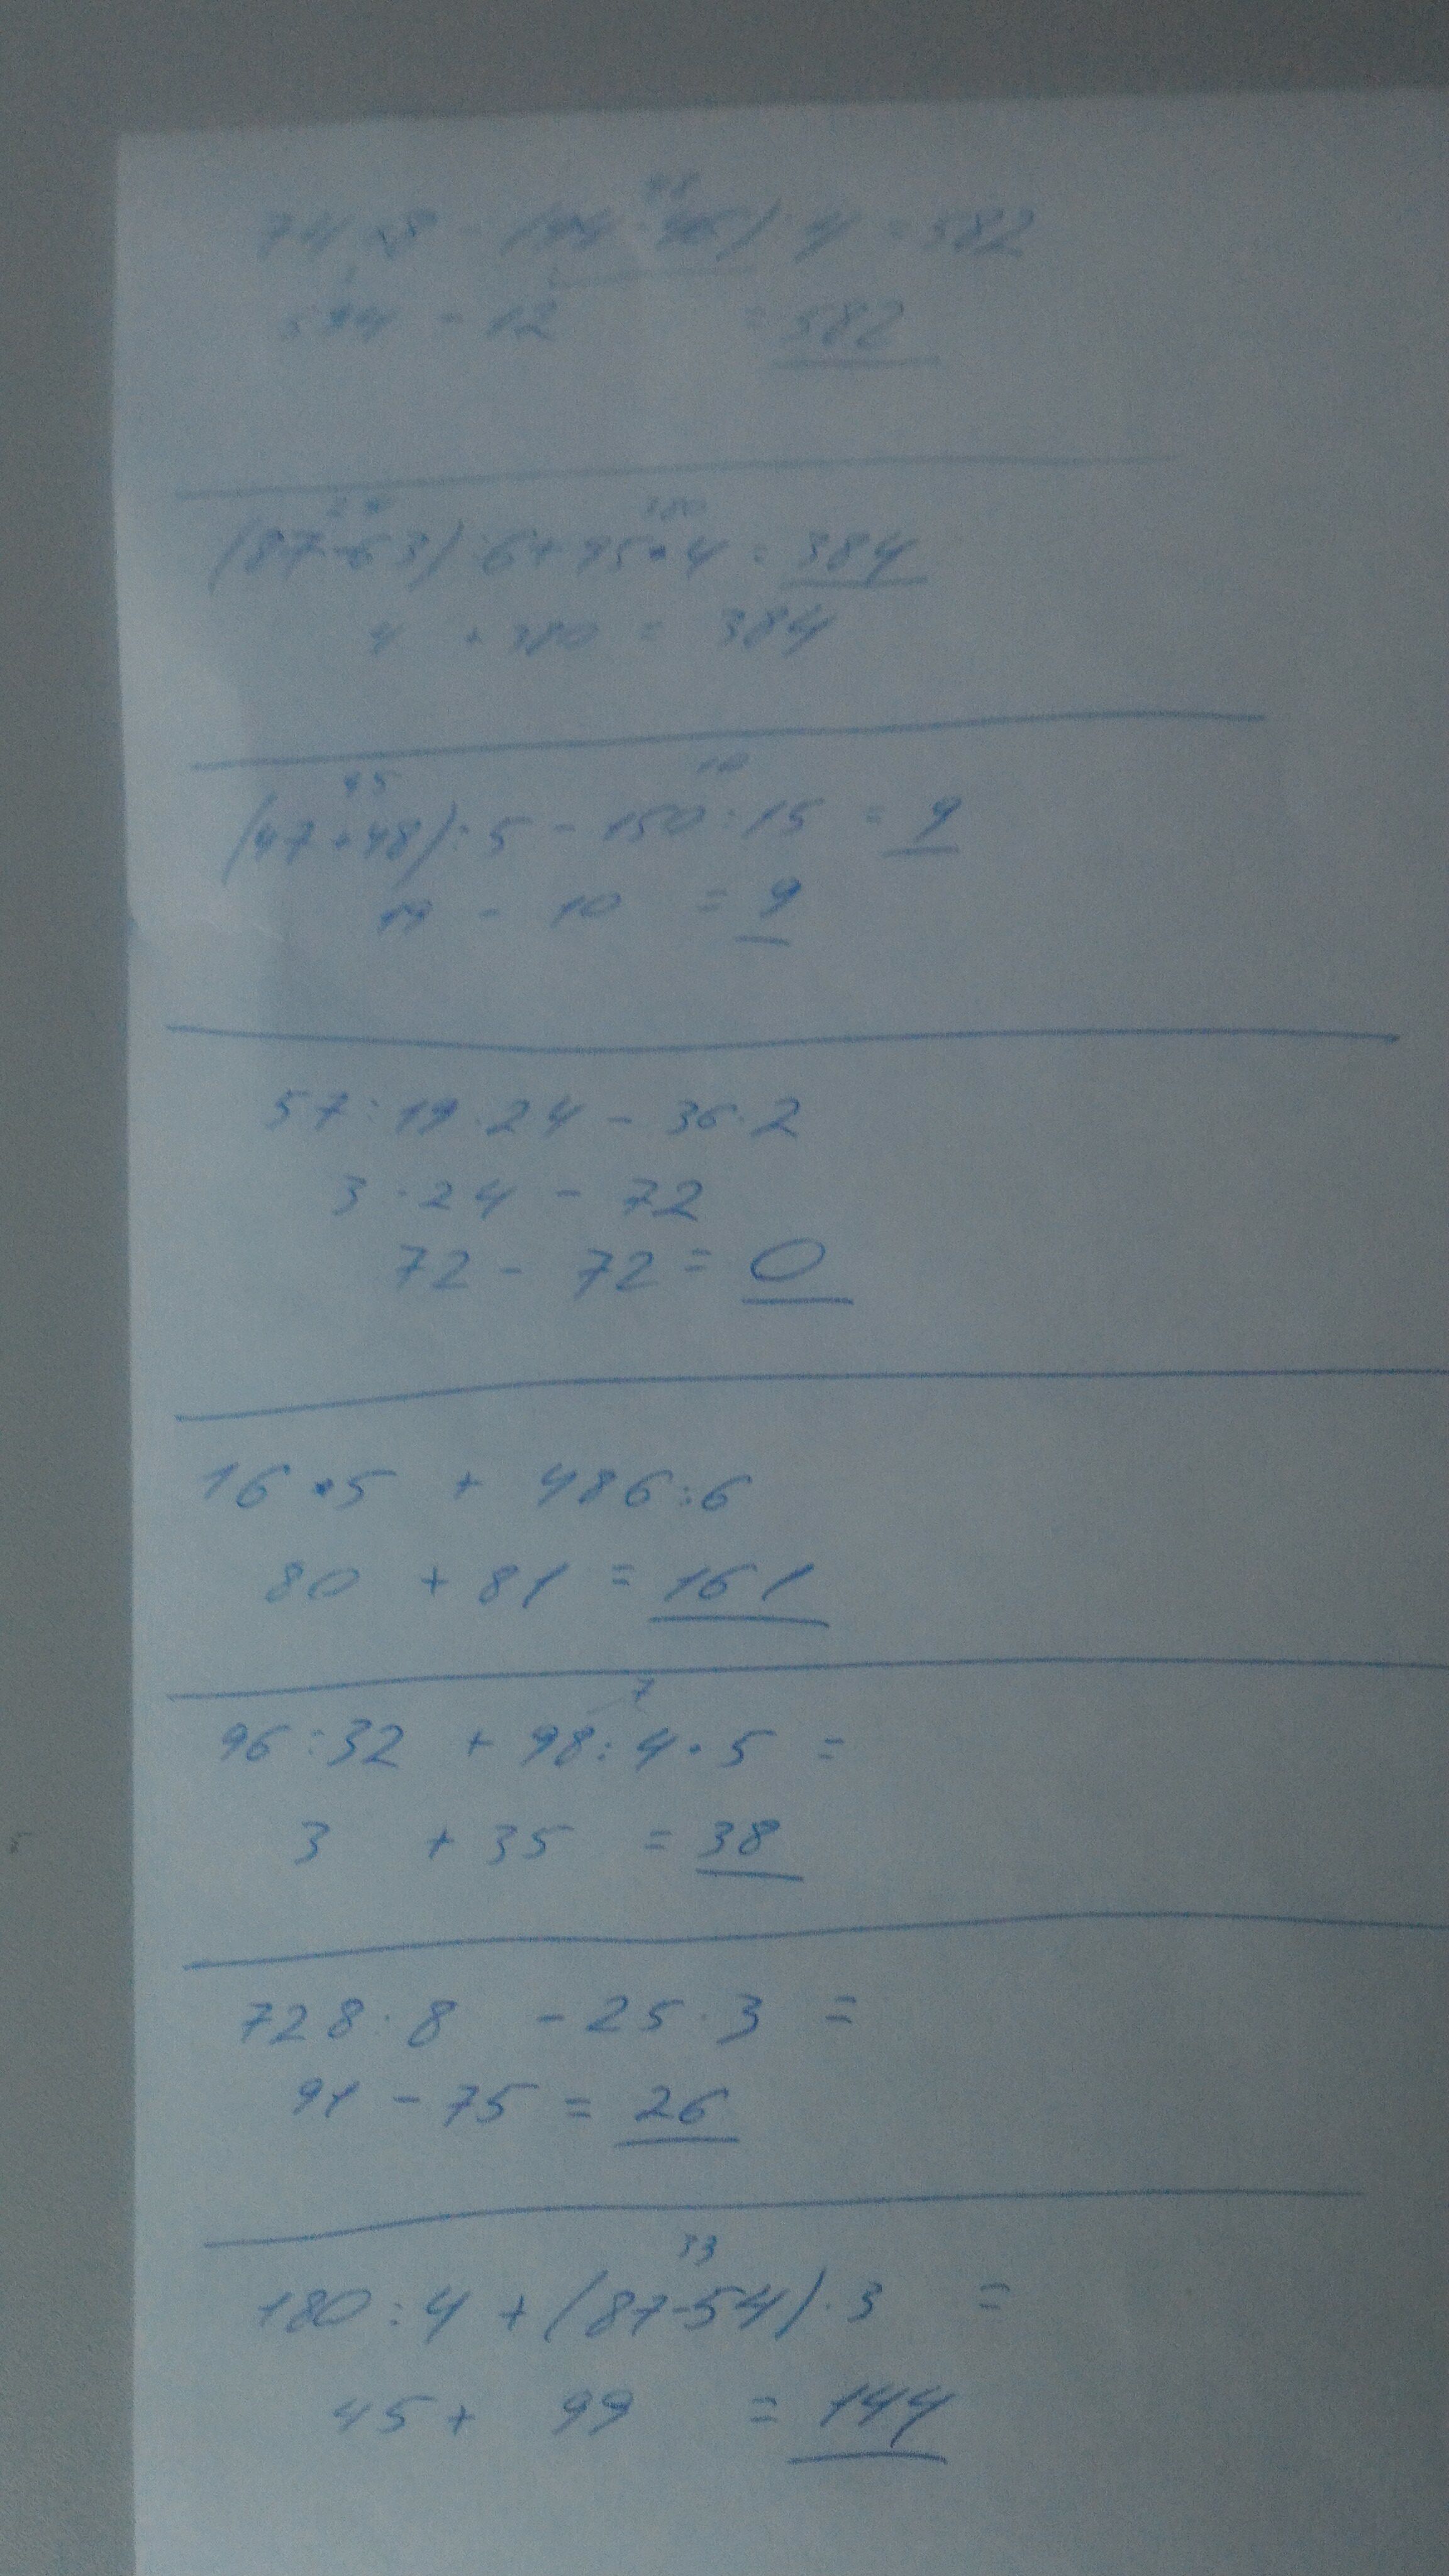 48
74 · 8 - (94 - 46) : 4 = 582
594 - 12 = 582
24 380
(87-63) : 6 + 95 · 4 = 384
4 + 380 = 384
95 10
(47+48) : 5 - 150 : 15 = 9
19 - 10 = 9
57 : 19 · 24 - 36 · 2
3 · 24 - 72
72 - 72 = 0
16 · 5 + 486 : 6
80 + 81 = 161
7
96 : 32 + 98 : 4 · 5 =
3 + 35 = 38
728 : 8 - 25 · 3 =
91 - 75 = 26
33
180 : 4 + (87-54) · 3 =
45 + 99 = 144